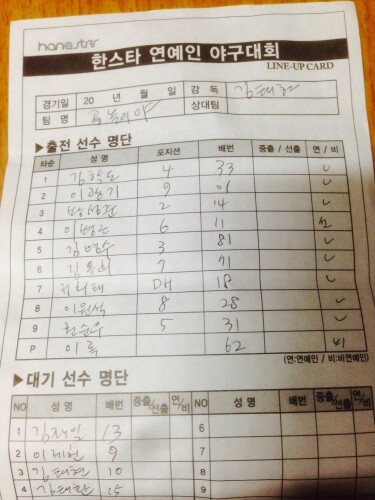 hanestar
한스타 연예인 야구대회
LINE-UP CARD
경기일 20 년 월 일 감독 김태현
팀 명 상대팀
▶출전 선수 명단
타순 성 명 포지션 배번 중출 / 선출 연 / 비
1 김학도 4 33 ✓
2 이광기 9 01 ✓
3 2 14 ✓
4 6 11
5 김명수 3 81 ✓
6 김용희 7 71 ✓
7 DH 18 ✓
8 이원석 8 28 ✓
9 현순우 5 31 ✓
P 이록 62 비
(연:연예인 / 비:비연예인)
▶대기 선수 명단
NO 성 명 배번 중출/선출 연/비 NO 성 명 배번 중출/선출 연/비
1 김재일 13 6
2 이제헌 9 7
3 김태현 10 8
4 김태환 15 9